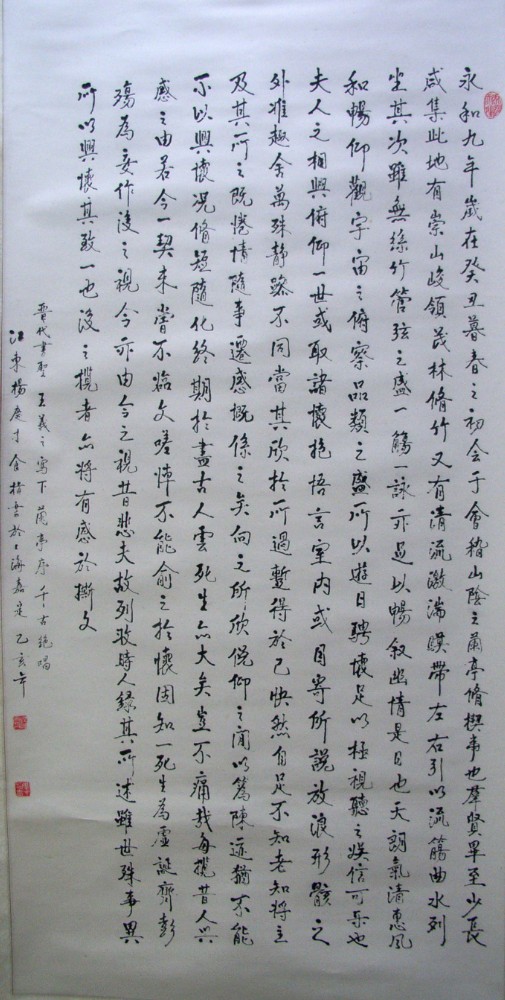 永和九年歲在癸丑暮春之初会于會稽山陰之蘭亭脩禊事也羣賢畢至少長
咸集此地有崇山峻領茂林脩竹又有清流激湍暎帶左右引以流觴曲水列
坐其次雖無絲竹管弦之盛一觴一詠亦足以暢敘幽情是日也天朗氣清惠風
和暢仰觀宇宙之俯察品類之盛所以遊目騁懷足以極視聽之娛信可樂也
夫人之相與俯仰一世或取諸懷抱悟言室內或因寄所託放浪形骸之
外雖趣舍萬殊静躁不同當其欣於所遇蹔得於己快然自足不知老知將至
及其所之既惓情隨事遷感慨係之矣向之所欣俛仰之間以為陳迹猶不能
不以興懷況脩短隨化終期於盡古人雲死生亦大矣豈不痛哉每攬昔人興
感之由若合一契未嘗不臨文嗟悼不能喻之於懷固知一死生為虛誕齊彭
殤為妄作後之視今亦由今之視昔悲夫故列敘時人錄其所述雖世殊事異
所以興懷其致一也後之攬者亦將有感於斯文
晉代書聖王羲之寫下蘭亭序千古絕唱
江東楊才食指書於上海嘉定乙亥年